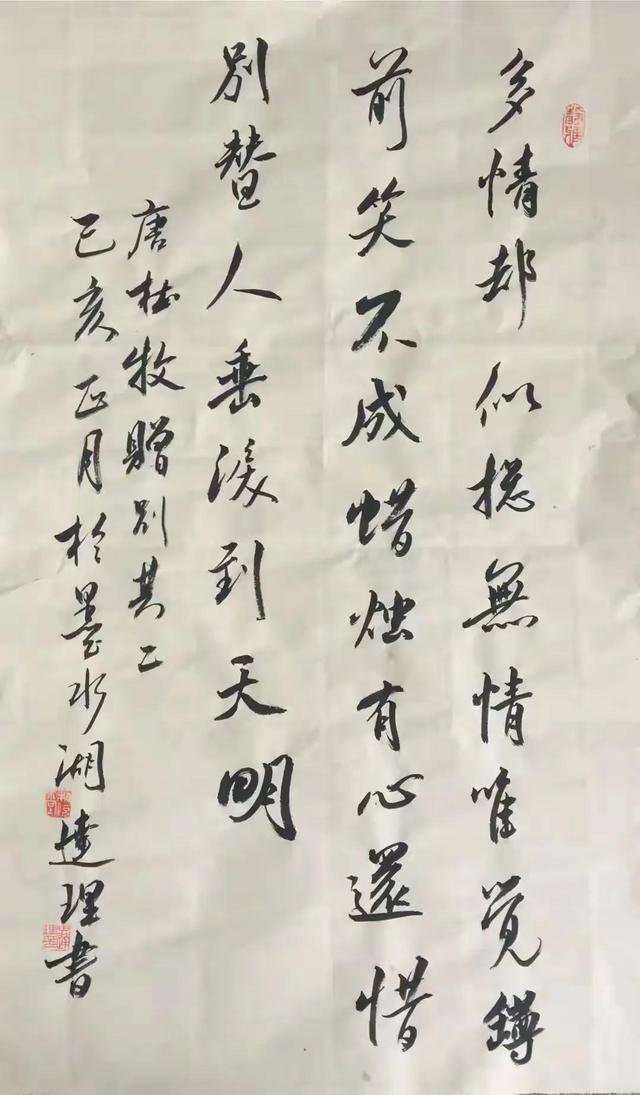 多情却似揔無情唯覚鐏
前笑不成蜡烛有心還惜
別替人垂淚到天明
唐杜牧贈别其二
己亥正月於墨水湖達理書